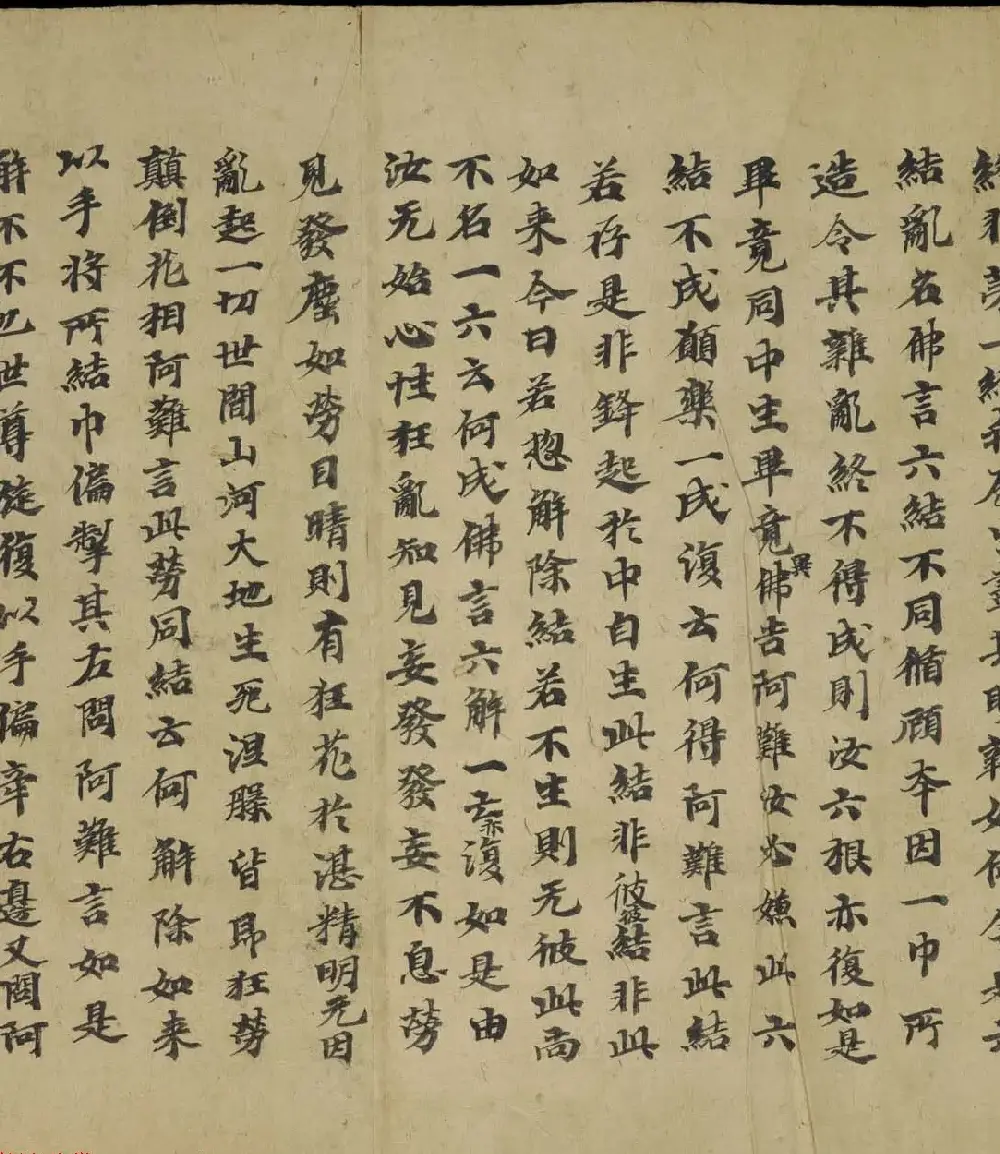 終非第一縱我歷生盡其明辯如何令是六
結亂名佛言六結不同循顧本因一巾所
造令其雜亂終不得成則汝六根亦復如是
畢竟同中生畢竟異佛告阿難汝必嫌此六
結不成願樂一成復云何得阿難言此結
若存是非鋒起於中自生此結非彼彼結非此
如来今日若惣解除結若不生則无彼此尚
不名一六云何成佛言六解一亡亦復如是由
汝无始心性狂亂知見妄發發妄不息勞
見發塵如勞目睛則有狂花於湛精明无因
亂起一切世間山河大地生死涅槃皆即狂勞
顛倒花相阿難言此勞同結云何解除如来
以手将所結巾偏掣其左問阿難言如是
解不不也世尊旋復以手偏牽右邊又問阿